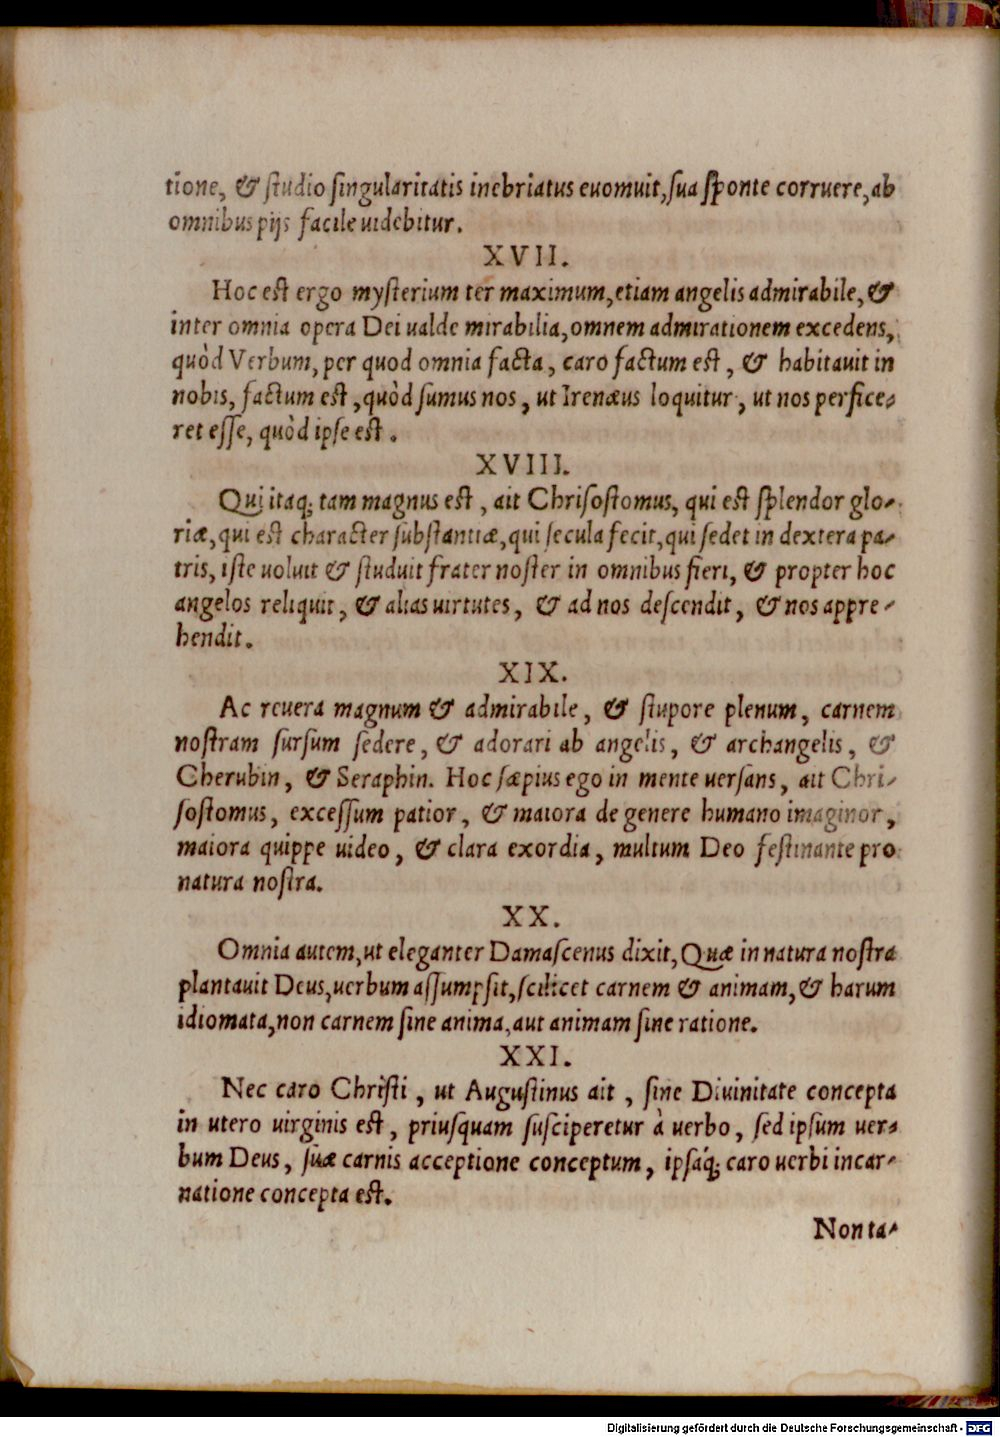 tione, & ſtudio ſingularitatis inebriatus euomuit, ſua ſponte corruere, ab
omnibus pijs facile uidebitur.
XVII.
Hoc eſt ergo myſterium ter maximum, etiam angelis admirabile, &
inter omnia opera Dei ualde mirabilia, omnem admirationem excedens,
quòd Verbum, per quod omnia facta, caro factum eſt, & habitauit in
nobis, factum eſt, quòd ſumus nos, ut Irenæus loquitur, ut nos perfice-
ret eſſe, quòd ipſe eſt.
XVIII.
Qui itaq; tam magnus eſt, ait Chriſoſtomus, qui eſt ſplendor glo-
riæ, qui eſt character ſubſtantiæ, qui ſecula fecit, qui ſedet in dextera pa-
tris, iſte uoluit & ſtuduit frater noſter in omnibus fieri, & propter hoc
angelos reliquit, & alias uirtutes, & ad nos deſcendit, & nos appre-
hendit.
XIX.
Ac reuera magnum & admirabile, & ſtupore plenum, carnem
noſtram ſurſum ſedere, & adorari ab angelis, & archangelis, &
Cherubin, & Seraphin. Hoc ſæpius ego in mente uerſans, ait Chri-
ſoſtomus, exceſſum patior, & maiora de genere humano imaginor,
maiora quippe uideo, & clara exordia, multum Deo feſtinante pro
natura noſtra.
XX.
Omnia autem, ut eleganter Damaſcenus dixit, Quæ in natura noſtra
plantauit Deus, uerbum aſſumpſit, ſcilicet carnem & animam, & harum
idiomata, non carnem ſine anima, aut animam ſine ratione.
XXI.
Nec caro Chriſti, ut Auguſtinus ait, ſine Diuinitate concepta
in utero uirginis eſt, priuſquam ſuſciperetur à uerbo, ſed ipſum uer-
bum Deus, ſuæ carnis acceptione conceptum, ipſáq; caro uerbi incar-
natione concepta eſt.
Non ta-
Digitalisierung gefördert durch die Deutsche Forschungsgemeinschaft - DFG